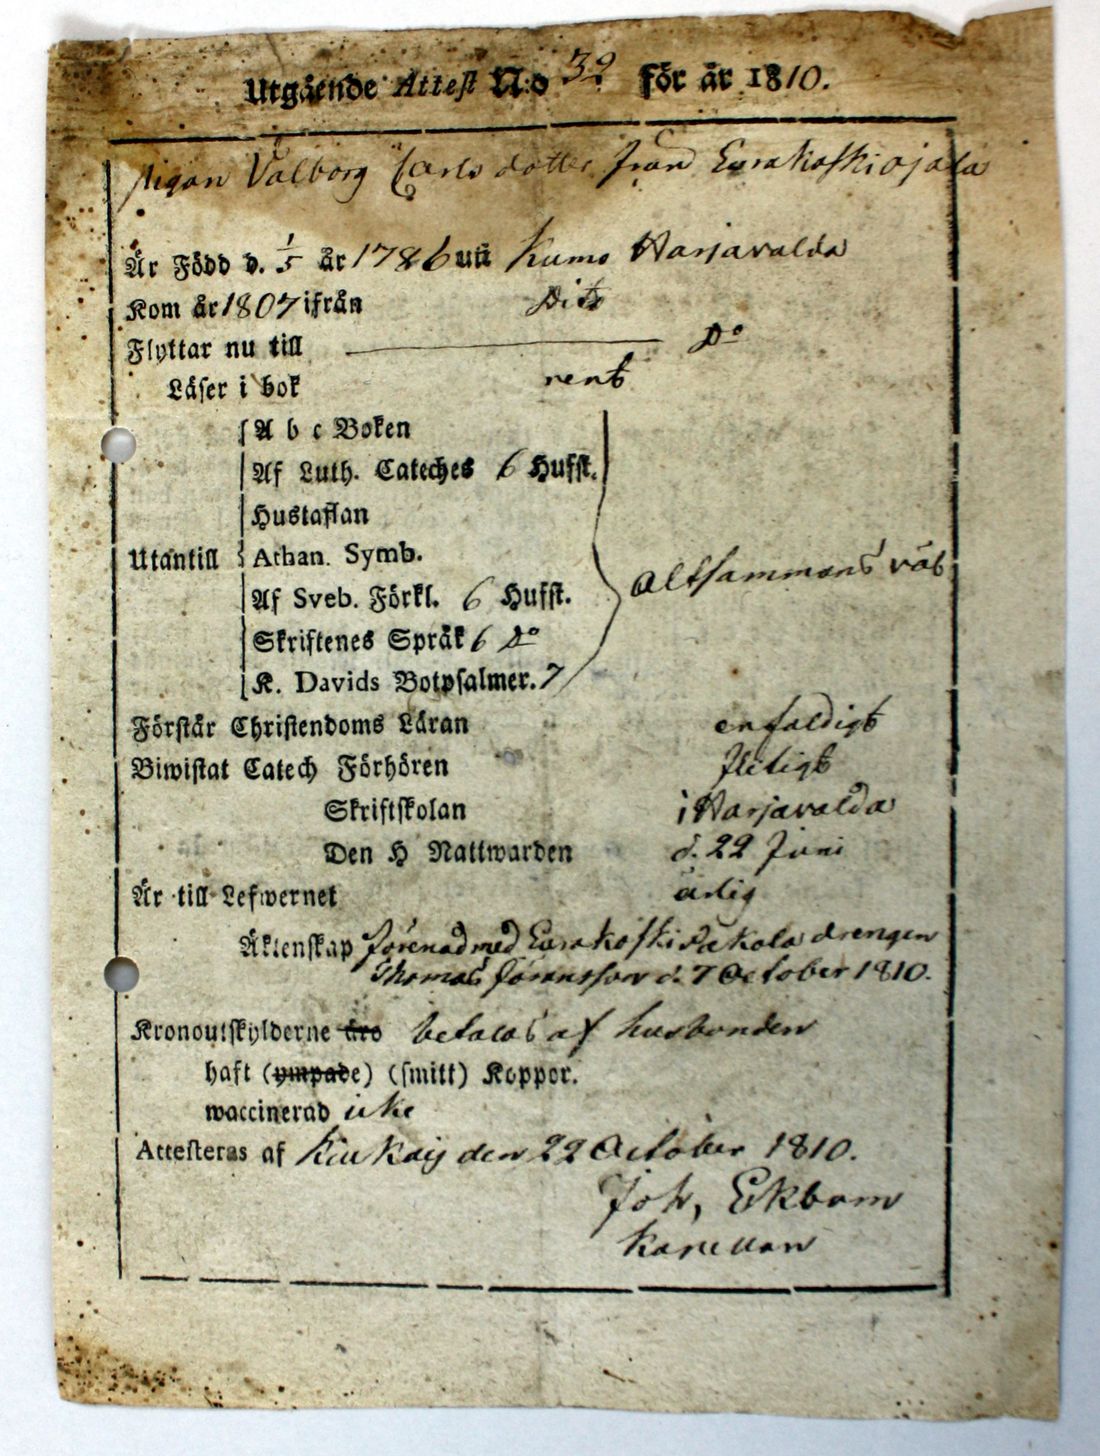 Utgående Attest N:o 32 för år 1810.
Pigan Valborg Carls dotter från Eurakoski ojala
Är Född d. 1/5 år 1786 uti Kumo Harjavalda
Kom år 1807 ifrån Dito
Flyttar nu till Do
Läser i bok rent
A b c Boken
Af Luth. Cateches 6 Hufst.
Hustaflan
Utantill Athan. Symb. altsammans väl
Af Sveb. Förkl. 6 Hufst.
Skriftenes Språk 6 Do
K. Davids Botpsalmer. 7
Förstår Christendoms Läran enfaldigt
Biwistat Catech Förhören flitigt
Skriftskolan i Harjavalda
Den H Nattwarden d. 22 Juni
Är till Lefwernet ärlig
Äktenskap förenad med Eurakoski drengen
Thomas Göransson d. 7 October 1810.
Kronoutskylderne äro betalas af husbonden
haft (ympade) (smitt) Koppor.
waccinerad icke
Attesteras af Kiukais den 22 October 1810.
Joh, Ekbom